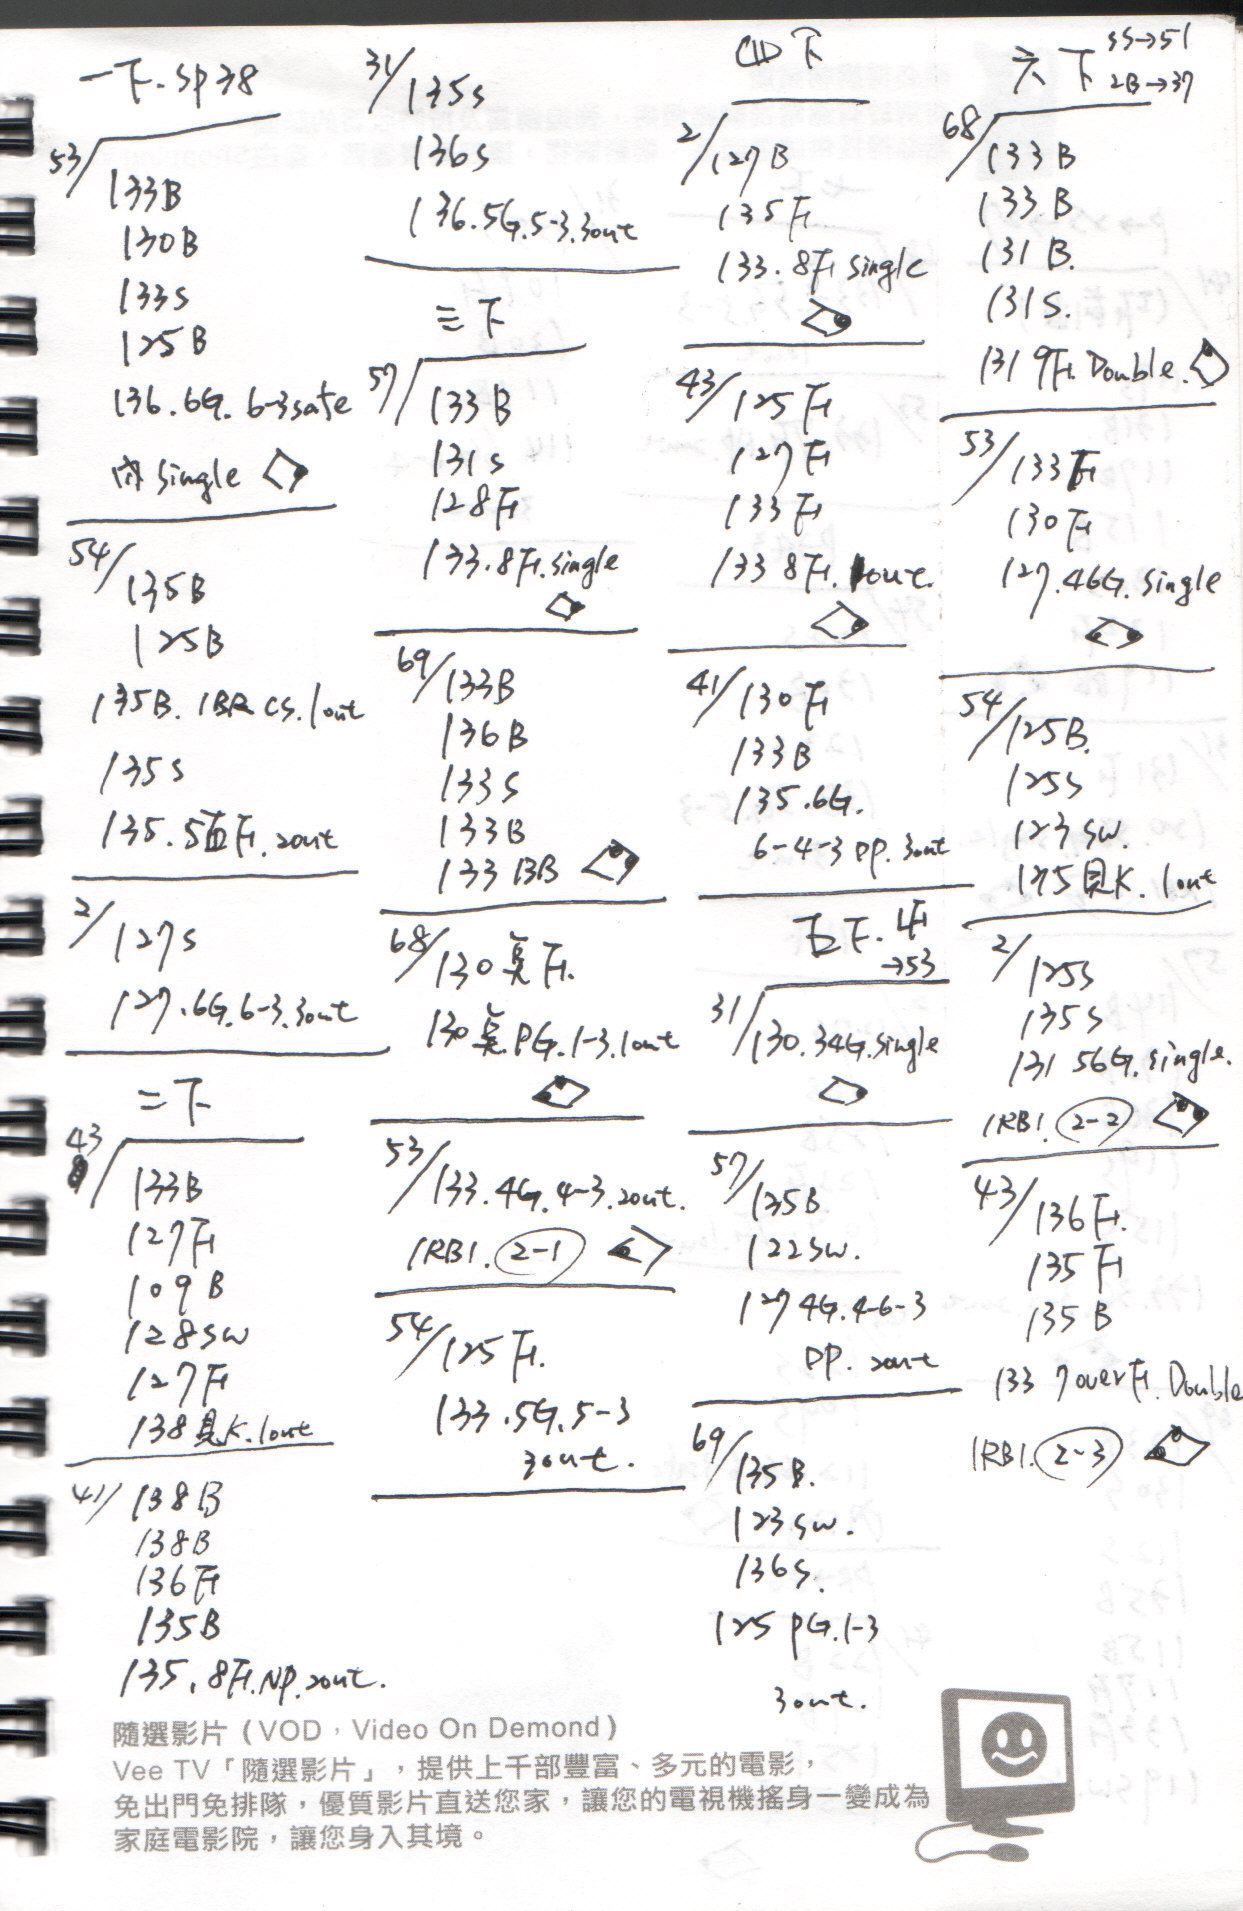 一下. SP38
53/
133B
130B
133S
125B
136.6G. 6-3safe
內 single
54/135B
125B
135B. 1BR CS. 1out
135S
135.5直F. 2out
2/127S
127.6G.6-3.3out
二下
43/
133B
127F
109B
128SW
127F
138見K.1out
41/138B
138B
136F
135B
135.8F.NP.2out.
31/135S
136S
136.5G.5-3.3out
三下
57/133B
131S
128F
133.8F.single
69/133B
136B
133S
133B
133 BB
68/130 F.
130 PG.1-3.1out
53/133.4G.4-3.2out.
1RBI. 2-1
54/125F.
133.5G.5-3
3out.
四下
2/127B
135F
133.8F single
43/125F
127F
133F
133 8F. 1out.
41/130F
133B
135.6G.
6-4-3 DP. 3out
五下. 4F
→53
31/130.34G.single
57/135B
122SW.
127 4G.4-6-3
DP. 2out
69/135B.
123SW.
136S.
125 PG.1-3
3out.
六下 SS→51
2B→37
68/133B
133B
131B.
131S.
131 9F. Double.
53/133F
130F
127.46G. single
54/125B.
125S
123SW.
135見K. 1out
2/125S
135S
131 56G. single.
1RBI. 2-2
43/136F.
135F
135B
133 7overF. Double
1RBI. 2-3
隨選影片（VOD，Video On Demond）
Vee TV「隨選影片」，提供上千部豐富、多元的電影，
免出門免排隊，優質影片直送您家，讓您的電視機搖身一變成為
家庭電影院，讓您身入其境。